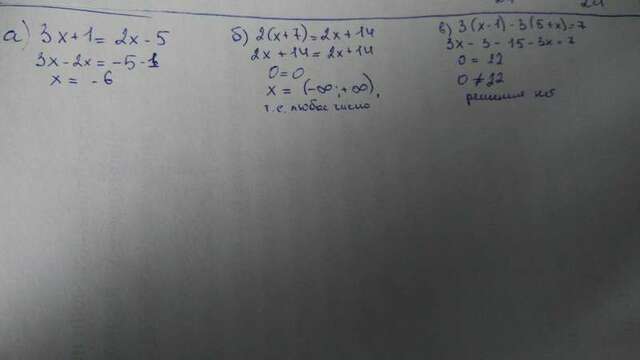 а) 3x+1 = 2x-5
3x-2x = -5-1
x = -6
б) 2(x+7)=2x+14
2x+14=2x+14
0=0
x = (-∞;+∞),
т.е. любое число
в) 3(x-1)-3(5+x)=7
3x-3-15-3x=7
0 = 22
0 ≠ 22
решения нет